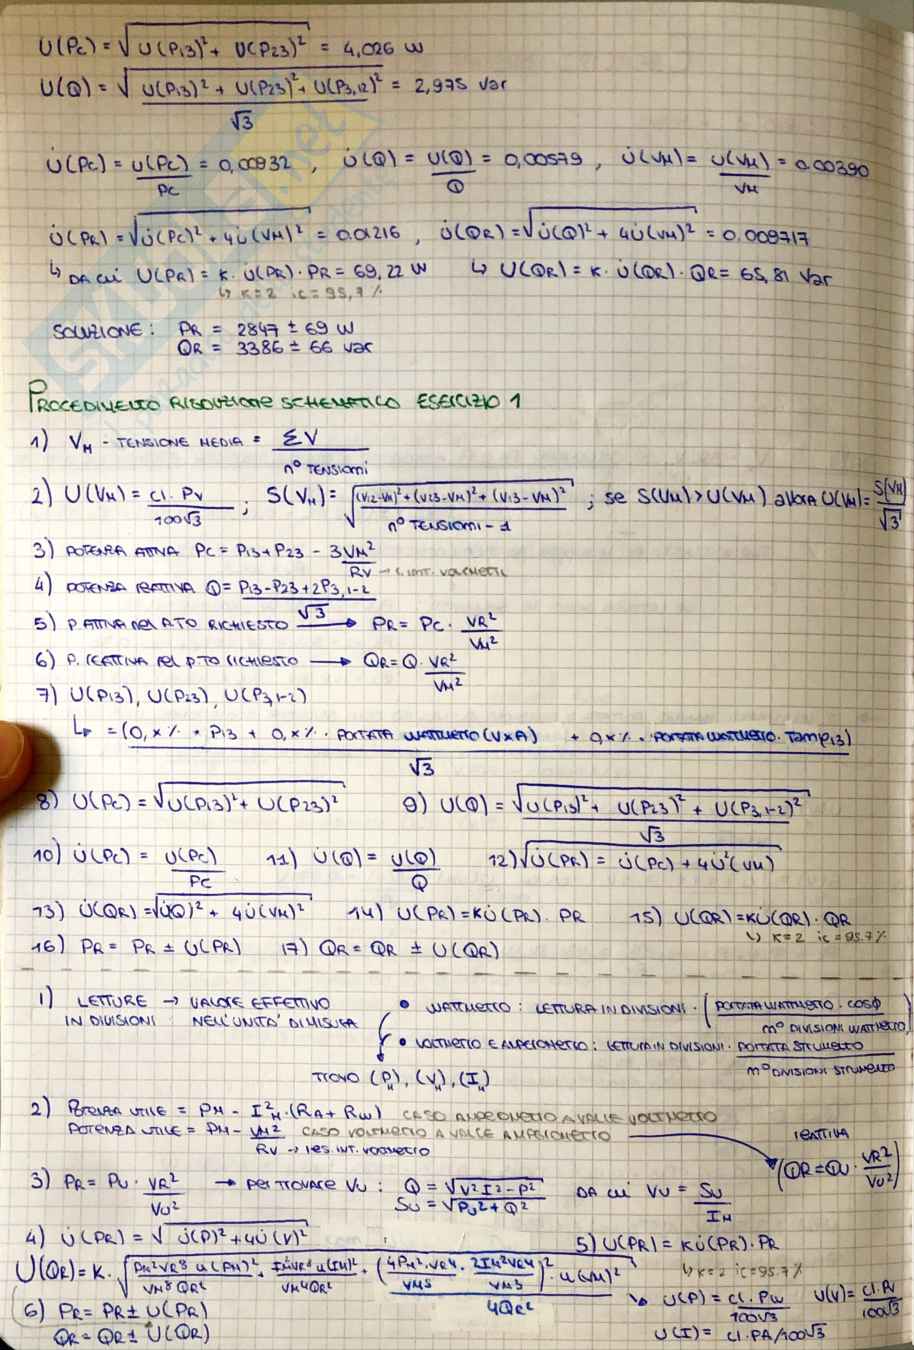 U(Pc) = √(U(P13)² + U(P23)²) = 4,026 W
U(Q) = √(U(P13)² + U(P23)² + U(P3,12)²) / √3 = 2,975 Var
U̇(Pc) = U(Pc)/Pc = 0,00932 , U̇(Q) = U(Q)/Q = 0,00579 , U̇(VM) = U(VM)/VM = 0.00390
U̇(PR) = √(U̇(Pc)² + 4U̇(VM)²) = 0.01216 , U̇(QR) = √(U̇(Q)² + 4U̇(VM)²) = 0.009717
↳ DA CUI U(PR) = K · U̇(PR) · PR = 69,22 W ↳ U(QR) = K · U̇(QR) · QR = 65,81 Var
↳ K=2 ic = 95,7 %
SOLUZIONE: PR = 2847 ± 69 W
QR = 3386 ± 66 Var
PROCEDIMENTO RISOLUZIONE SCHEMATICO ESERCIZIO 1
1) VM - TENSIONE MEDIA = ΣV / n° TENSIONI
2) U(VM) = Cl. PV / 100√3 ; S(VM) = √((V12-VM)² + (V23-VM)² + (V13-VM)² / n° TENSIONI - 1) ; se S(VM) > U(VM) allora U(VM) = S(VM)/√3
3) POTENZA ATTIVA Pc = P13 + P23 - 3VM²/RV → r. int. VOLMETRI
4) POTENZA REATTIVA Q = P13 - P23 + 2P3,1-2 / √3
5) P. ATTIVA nel P.TO RICHIESTO → PR = Pc · VR²/VM²
6) P. REATTIVA nel P.TO RICHIESTO → QR = Q · VR²/VM²
7) U(P13), U(P23), U(P3,1-2)
↳ = (0,x% · P13 + 0,x% · PORTATA WATTMETRO (VxA) + 0,x% · PORTATA WATTMETRO · Tanφ13) / √3
8) U(Pc) = √(U(P13)² + U(P23)²) 9) U(Q) = √(U(P13)² + U(P23)² + U(P3,1-2)²) / √3
10) U̇(Pc) = U(Pc)/Pc 11) U̇(Q) = U(Q)/Q 12) √U̇(PR) = U̇(Pc) + 4U̇²(VM)
13) U̇(QR) = √(U̇(Q)² + 4U̇(VM)²) 14) U(PR) = KU̇(PR) · PR 15) U(QR) = KU̇(QR) · QR
↳ K=2 ic = 95.7 %
16) PR = PR ± U(PR) 17) QR = QR ± U(QR)
1) LETTURE → VALORE EFFETTIVO • WATTMETRO: LETTURA IN DIVISIONI · (PORTATA WATTMETRO · COSΦ / n° DIVISIONI WATTMETRO)
IN DIVISIONI NELL'UNITA' DI MISURA • VOLTMETRO E AMPEROMETRO: LETTURA IN DIVISIONI · PORTATA STRUMENTO / n° DIVISIONI STRUMENTO
TROVO (PM), (VM), (IM)
2) POTENZA UTILE = PM - I²M · (RA + RW) CASO AMPEROMETRO A VALLE VOLTMETRO
POTENZA UTILE = PM - VM²/RV CASO VOLTMETRO A VALLE AMPEROMETRO
RV → res. int. VOLTMETRO
reattiva
(QR = QU · VR²/VU²)
3) PR = PU · VR²/VU² → PER TROVARE VU: Q = √(V²I² - P²) DA CUI VU = SU/IM
SU = √(PU² + Q²)
4) U̇(PR) = √(U̇(P)² + 4U̇(V)²) 5) U(PR) = KU̇(PR) · PR
↳ K=2 ic = 95.7 %
U(QR) = K · √(PM² VR⁸ U(PM)² / VM⁸ QR² + IM² VR⁸ U(IM)² / VM⁴ QR² + (4PM² VR⁴ / VM5 · 2IM² VR4 / VM3)² · U(VM)² / 4QR²)
↘ U(P) = Cl. PW / 100√3 U(V) = Cl. PV / 100√3
U(I) = Cl. PA/100√3
6) PR = PR ± U(PR)
QR = QR ± U(QR)